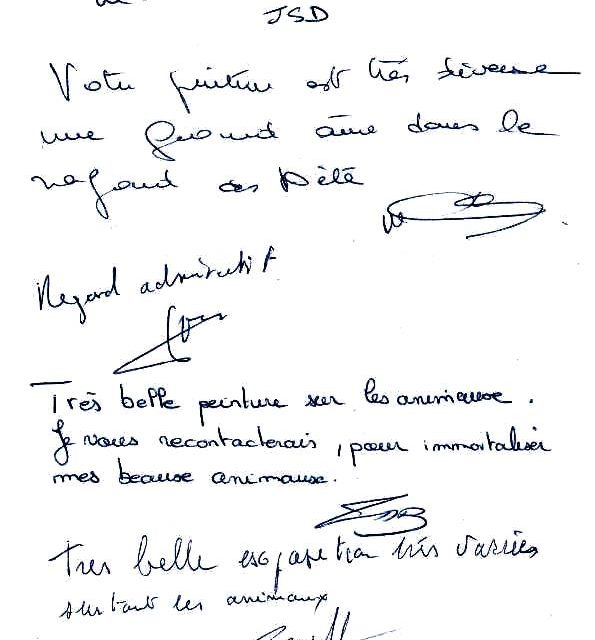 JSD
Votre peinture est très
une grand âme dans le
regard des bêtê
Regard admiratif
Très belle peinture sur les animause.
Je vous recontacterais, pour immortaliser
mes beause animause.
Tres belle exposetion très varriés
surtout les animaux